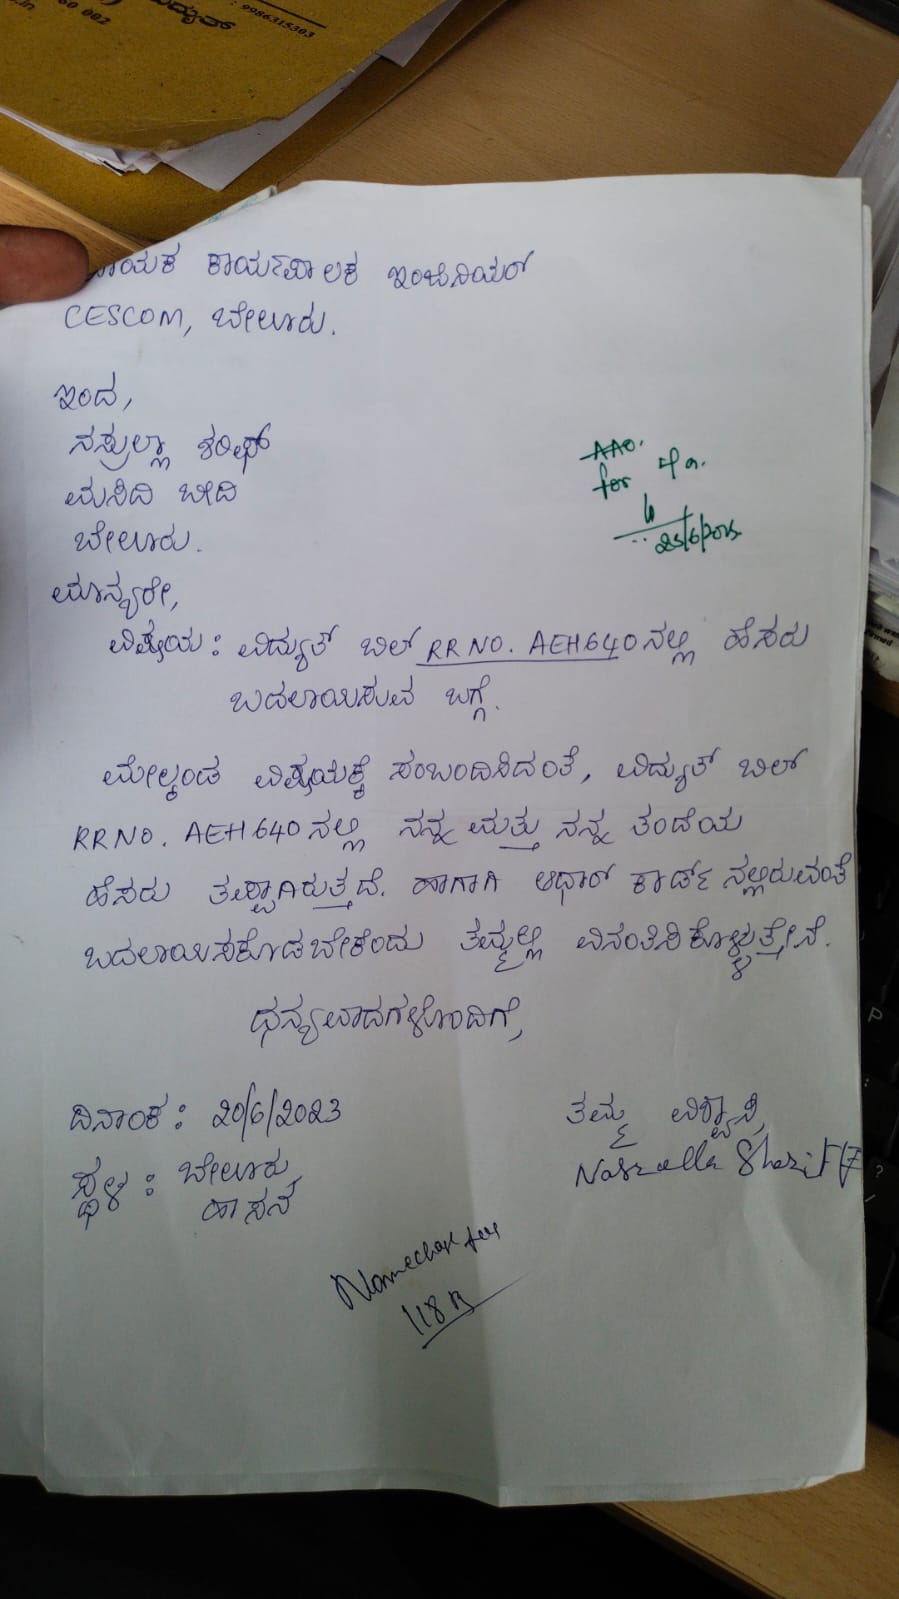 9986315303
60 002
ಕಾರ್ಯಪಾಲಕ ಇಂಜಿನಿಯರ್
CESCOM, ಬೇಲೂರು.
ಇಂದ,
ನಸ್ರುಲ್ಲಾ ಶರೀಫ್
ಮಸೀದಿ ಬೀದಿ
ಬೇಲೂರು.
AAO.
for
25/6/2025
ಮಾನ್ಯರೇ,
ವಿಷಯ: ವಿದ್ಯುತ್ ಬಿಲ್ RR NO. AEH640ನಲ್ಲಿ ಹೆಸರು
ಬದಲಾಯಿಸುವ ಬಗ್ಗೆ.
ಮೇಲ್ಕಂಡ ವಿಷಯಕ್ಕೆ ಸಂಬಂದಿಸಿದಂತೆ, ವಿದ್ಯುತ್ ಬಿಲ್
RR NO. AEH 640 ನಲ್ಲಿ ನನ್ನ ಮತ್ತು ನನ್ನ ತಂದೆಯ
ಹೆಸರು ತಪ್ಪಾಗಿರುತ್ತದೆ. ಹಾಗಾಗಿ ಆಧಾರ್ ಕಾರ್ಡ್ ನಲ್ಲಿರುವಂತೆ
ಬದಲಾಯಿಸಕೊಡಬೇಕೆಂದು ತಮ್ಮಲ್ಲಿ ವಿನಂತಿಸಿಕೊಳ್ಳುತ್ತೇನೆ.
ಧನ್ಯವಾದಗಳೊಂದಿಗೆ,
ದಿನಾಂಕ: 20/6/2023
ತಮ್ಮ ವಿಶ್ವಾಸಿ,
ಸ್ಥಳ: ಬೇಲೂರು,
Nasrulla Sharif
ಹಾಸನ
118